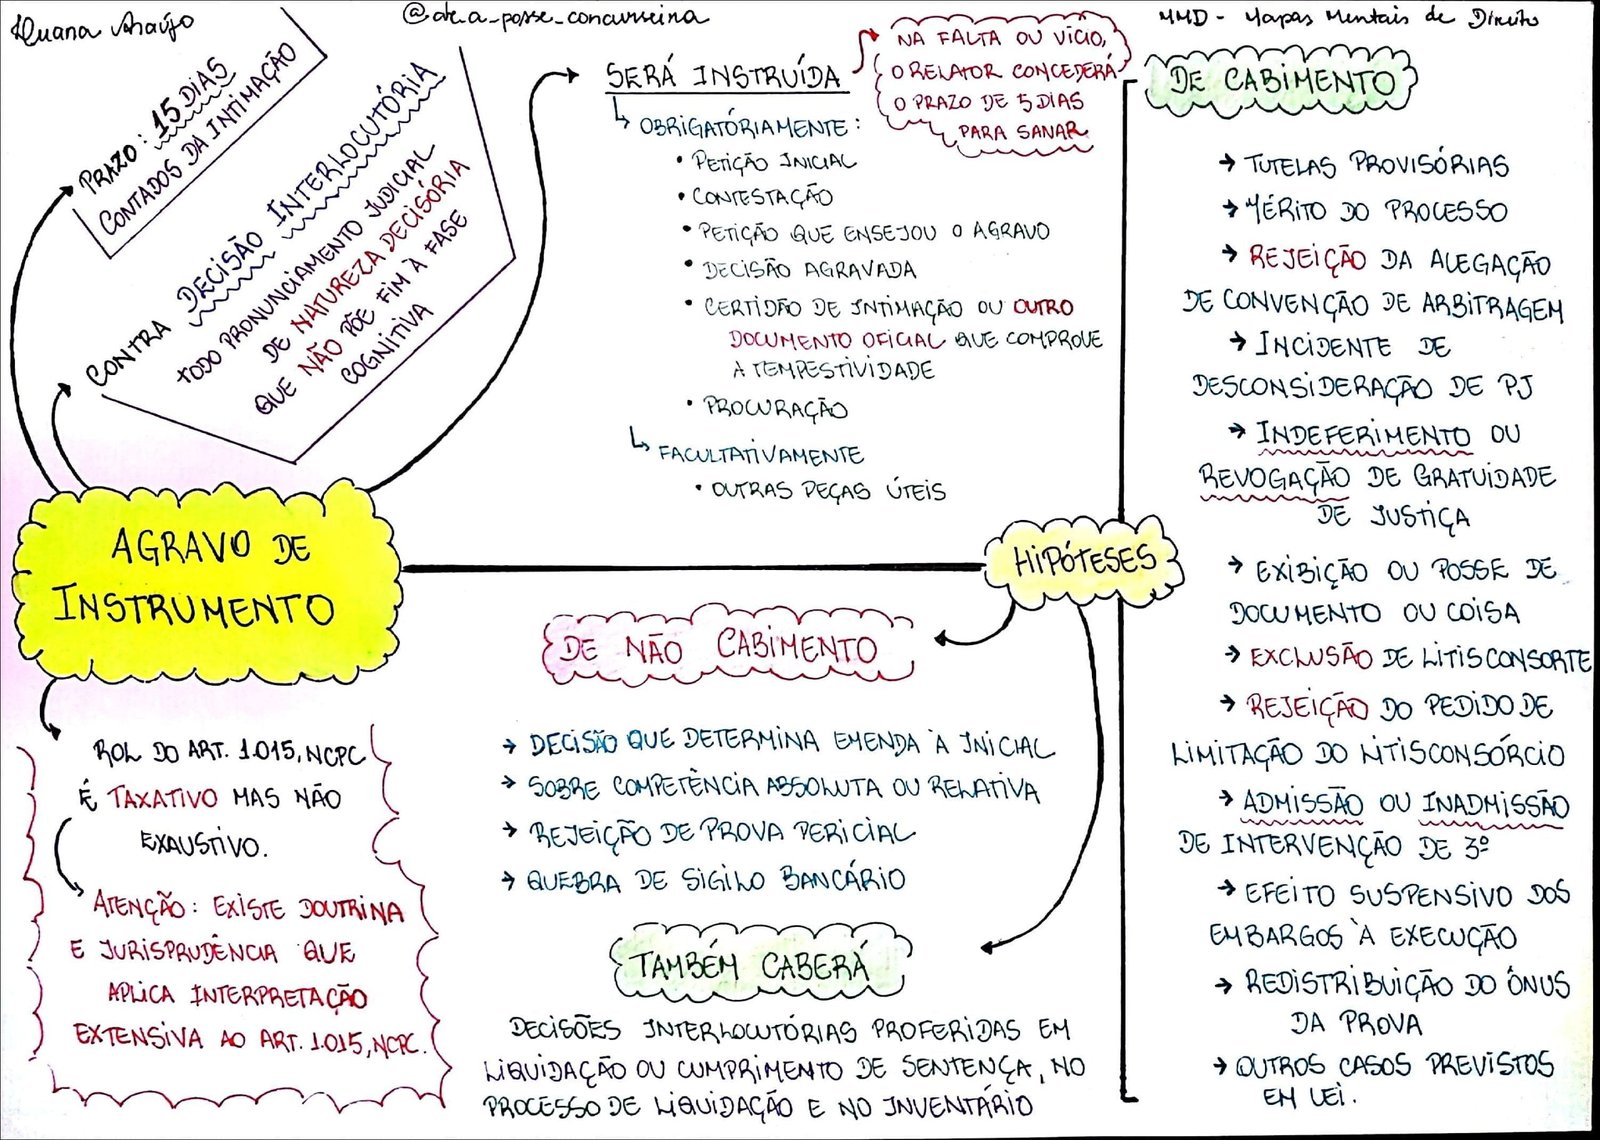 Luana Araújo
@ate_a_posse_concurseira
MMD - Mapas Mentais de Direito
PRAZO: 15 DIAS
CONTADOS DA INTIMAÇÃO
CONTRA DECISÃO INTERLOCUTÓRIA
TODO PRONUNCIAMENTO JUDICIAL
DE NATUREZA DECISÓRIA
QUE NÃO PÕE FIM À FASE
COGNITIVA
AGRAVO DE
INSTRUMENTO
ROL DO ART. 1.015, NCPC
É TAXATIVO MAS NÃO
EXAUSTIVO.
ATENÇÃO: EXISTE DOUTRINA
E JURISPRUDÊNCIA QUE
APLICA INTERPRETAÇÃO
EXTENSIVA AO ART. 1.015, NCPC.
SERÁ INSTRUÍDA
NA FALTA OU VÍCIO,
O RELATOR CONCEDERÁ
O PRAZO DE 5 DIAS
PARA SANAR
OBRIGATÓRIAMENTE:
• PETIÇÃO INICIAL
• CONTESTAÇÃO
• PETIÇÃO QUE ENSEJOU O AGRAVO
• DECISÃO AGRAVADA
• CERTIDÃO DE INTIMAÇÃO OU OUTRO
DOCUMENTO OFICIAL QUE COMPROVE
A TEMPESTIVIDADE
• PROCURAÇÃO
FACULTATIVAMENTE
• OUTRAS PEÇAS ÚTEIS
HIPÓTESES
DE NÃO CABIMENTO
→ DECISÃO QUE DETERMINA EMENDA À INICIAL
→ SOBRE COMPETÊNCIA ABSOLUTA OU RELATIVA
→ REJEIÇÃO DE PROVA PERICIAL
→ QUEBRA DE SIGILO BANCÁRIO
TAMBÉM CABERÁ
DECISÕES INTERLOCUTÓRIAS PROFERIDAS EM
LIQUIDAÇÃO OU CUMPRIMENTO DE SENTENÇA, NO
PROCESSO DE LIQUIDAÇÃO E NO INVENTÁRIO
DE CABIMENTO
→ TUTELAS PROVISÓRIAS
→ MÉRITO DO PROCESSO
→ REJEIÇÃO DA ALEGAÇÃO
DE CONVENÇÃO DE ARBITRAGEM
→ INCIDENTE DE
DESCONSIDERAÇÃO DE PJ
→ INDEFERIMENTO OU
REVOGAÇÃO DE GRATUIDADE
DE JUSTIÇA
→ EXIBIÇÃO OU POSSE DE
DOCUMENTO OU COISA
→ EXCLUSÃO DE LITISCONSORTE
→ REJEIÇÃO DO PEDIDO DE
LIMITAÇÃO DO LITISCONSÓRCIO
→ ADMISSÃO OU INADMISSÃO
DE INTERVENÇÃO DE 3º
→ EFEITO SUSPENSIVO DOS
EMBARGOS À EXECUÇÃO
→ REDISTRIBUIÇÃO DO ÔNUS
DA PROVA
→ OUTROS CASOS PREVISTOS
EM LEI.